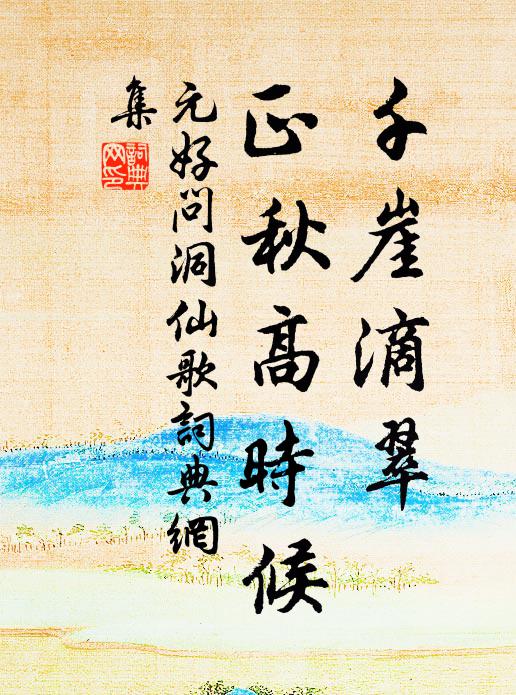 千崖滴翠
正秋高時候
元好问洞仙歌詞典網
集
詞典網印